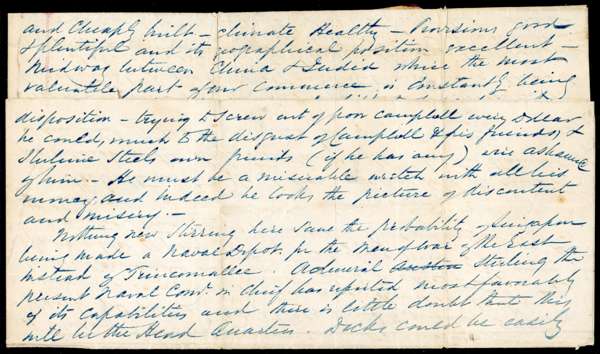 and Cheaply built – climate Healthy – Provisions good
& plentiful and its geographical position excellent –
Midway between China & India where the most
valuable part of our commerce is constantly being
disposition – trying to Screw out of poor Campbell every Dollar
he could, much to the disgust of Campbell & his friends, &
Steels own friends (if he has any) are ashamed
of him – He must be a miserable wretch with all his
money, and indeed he looks the picture of discontent
and misery. –
Nothing new Stirring here Save the probability of Singapore
being made a Naval Depot for the Men of war of the East
instead of Trincomallee. Admiral Austin Stirling the
present Naval Comr in chief has reported most favorably
of its capabilities and there is little doubt that this
will be the Head Quarters. Docks could be easily